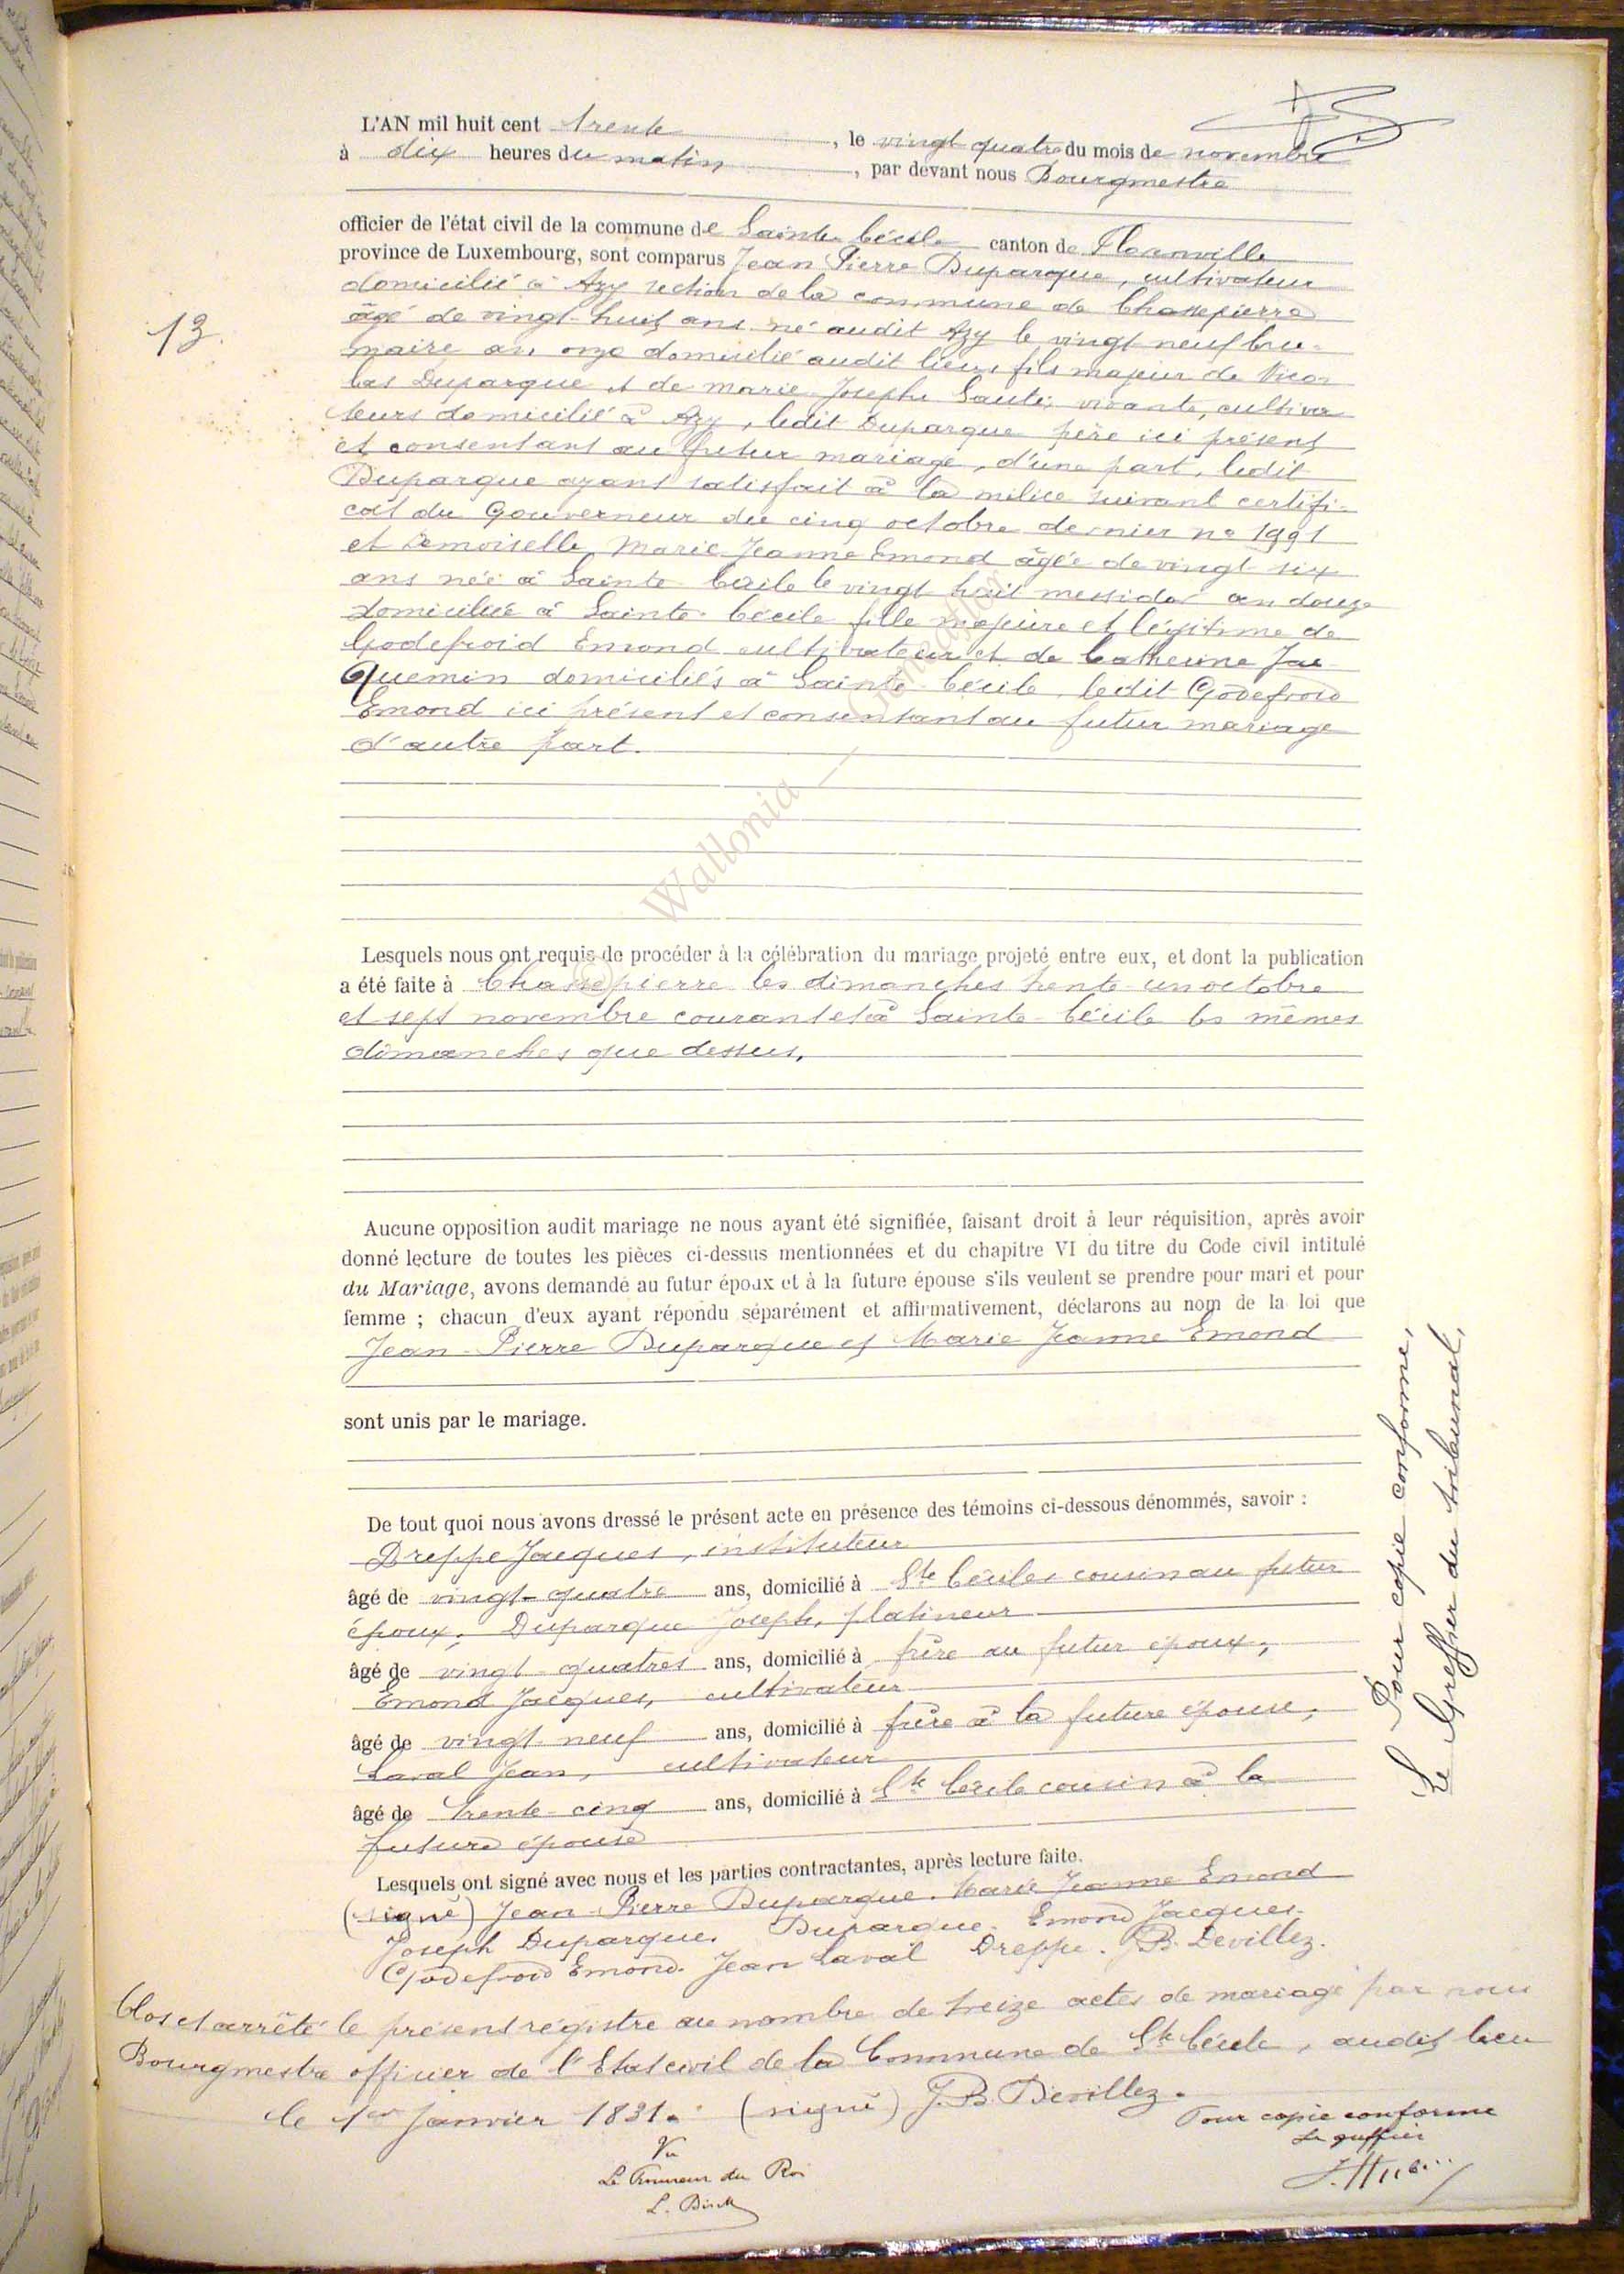 L'AN mil huit cent trente, le vingt quatre du mois de novembre
à dix heures du matin, par devant nous Bourgmestre
officier de l'état civil de la commune de Sainte Cécile canton de Florenville
province de Luxembourg, sont comparus Jean Pierre Duparque, cultivateur
domicilié à Azy section de la commune de Chassepierre
13.
âgé de vingt-huit ans né audit Azy le vingt neuf bru-
maire an onze domicilié audit lieu, fils majeur de Nico-
las Duparque et de marie Josephe vivants, cultiva
teurs domicilié à Azy, ledit Duparque père ici présent
et consentant au futur mariage, d'une part, ledit
Duparque ayant satisfait à la milice suivant certifi-
cat du Gouverneur du cinq octobre dernier no 1991
et Demoiselle Marie Jeanne Emond âgée de vingt six
ans née à Sainte Cécile le vingt huit messidor an douze
domiciliée à Sainte-Cécile fille majeure et légitime de
Godefroid Emond cultivateur et de Catherine Jac
Quemin domiciliés à Sainte-Cécile ledit Godefroid
Emond ici présent et consentant au futur mariage
d'autre part.
© Wallonia
Lesquels nous ont requis de procéder à la célébration du mariage projeté entre eux, et dont la publication
a été faite à Chassepierre les dimanches trente-un octobre
et sept novembre courant et à Sainte-Cécile les mêmes
dimanches que dessus.
Aucune opposition audit mariage ne nous ayant été signifiée, faisant droit à leur réquisition, après avoir
donné lecture de toutes les pièces ci-dessus mentionnées et du chapitre VI du titre du Code civil intitulé
du Mariage, avons demandé au futur époux et à la future épouse s'ils veulent se prendre pour mari et pour
femme ; chacun d'eux ayant répondu séparément et affirmativement, déclarons au nom de la loi que
Jean-Pierre Duparque et Marie Jeanne Emond
sont unis par le mariage.
De tout quoi nous avons dressé le présent acte en présence des témoins ci-dessous dénommés, savoir :
Dreppe Jacques, instituteur
âgé de vingt-quatre ans, domicilié à Ste Cécile cousin au futur
époux, Duparque Joseph, platineur
âgé de vingt-quatres ans, domicilié à frère au futur époux,
Emond Jacques, cultivateur
âgé de vingt-neuf ans, domicilié à frère à la future épouse,
Laval Jean, cultivateur
âgé de trente-cinq ans, domicilié à Ste Cécile cousin à la
future épouse
Lesquels ont signé avec nous et les parties contractantes, après lecture faite.
(signé) Jean-Pierre Duparque. Marie Jeanne Emond
Joseph Duparque. Duparque. Emond Jacques.
Godefroid Emond. Jean Laval Dreppe. J.B. Devillez.
Clos et arrêté le présent registre au nombre de treize actes de mariage par nous
Bourgmestre officier de l'Etat civil de la Commune de Ste Cécile, audit lieu
le 1er Janvier 1831. (signé) J.B. Devillez.
Pour copie conforme
Le greffier
Vu
Le Procureur du Roi
Pour copie conforme,
Le Greffier du tribunal,